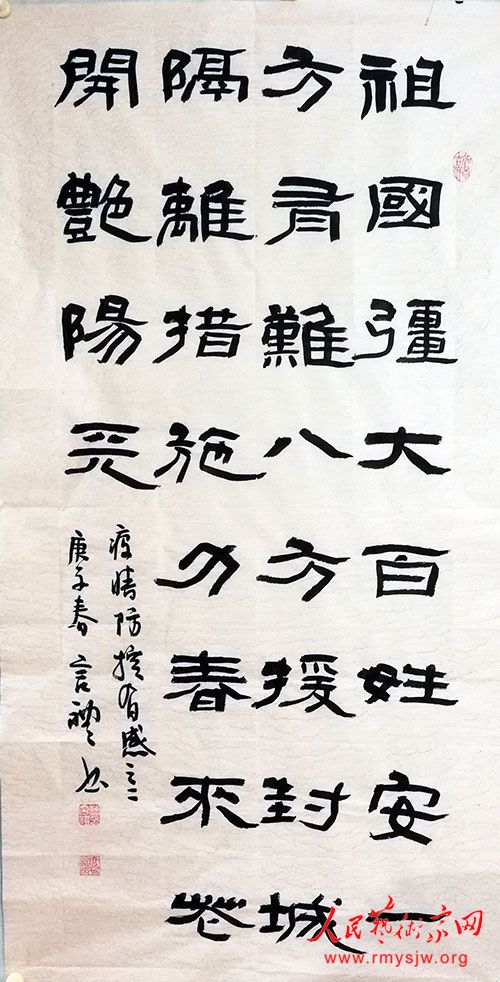 祖國彊大百姓安一
方有難八方援封城
隔離措施力春來花
開艷陽天
疫情防控有感之二
庚子春言禮书
人民藝術家网
www.rmysjw.org